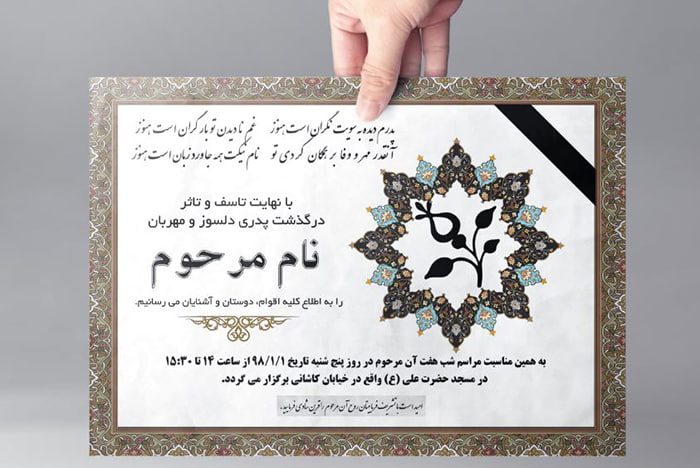 پدرم دیده به سویت نگران است هنوز غم نادیدن تو بار گران است هنوز
آنقدر مهر و وفا بر همگان کردی تو نام نیکت همه جا ورد زبان است هنوز
با نهایت تاسف و تاثر
درگذشت پدری دلسوز و مهربان
نام مرحوم
را به اطلاع کلیه اقوام، دوستان و آشنایان می رسانیم.
به همین مناسبت مراسم شب هفت آن مرحوم در روز پنج شنبه تاریخ ۹۸/۱/۱ از ساعت ۱۴ تا ۱۵:۳۰
در مسجد حضرت علی (ع) واقع در خیابان کاشانی برگزار می گردد.
امید است با تشریف فرمائیتان روح آن مرحوم را قرین شادی فرمایید.